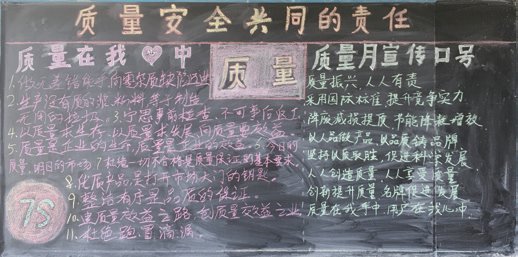 质量安全共同的责任
质量在我心中
质量
质量月宣传口号
2.生产没有质的飞
无用的垃圾。3.宁愿事前检查，不可事后返工
4.以质量求生存，以质量求发展，向质量要效益
5.质量是企业的生命，质量是企业的效益。6.今日的
质量，明日的市场。7.杜绝一切不合格是质量保证的基本要求
8.优质产品是打开市场大门的钥匙。
9.整洁有序是品质的保证
10.走质量效益之路，创质量效益之业
11.杜绝跑冒滴漏。
7S
质量振兴，人人有责
采用国际标准 提升竞争实力
降废减损提质 节能降耗增效
以人品做产品，以品质铸品牌
坚持以质取胜，促进科学发展
人人创造质量 人人享受质量
创新提升质量 名牌促进发展
质量在我手中 用户在我心中